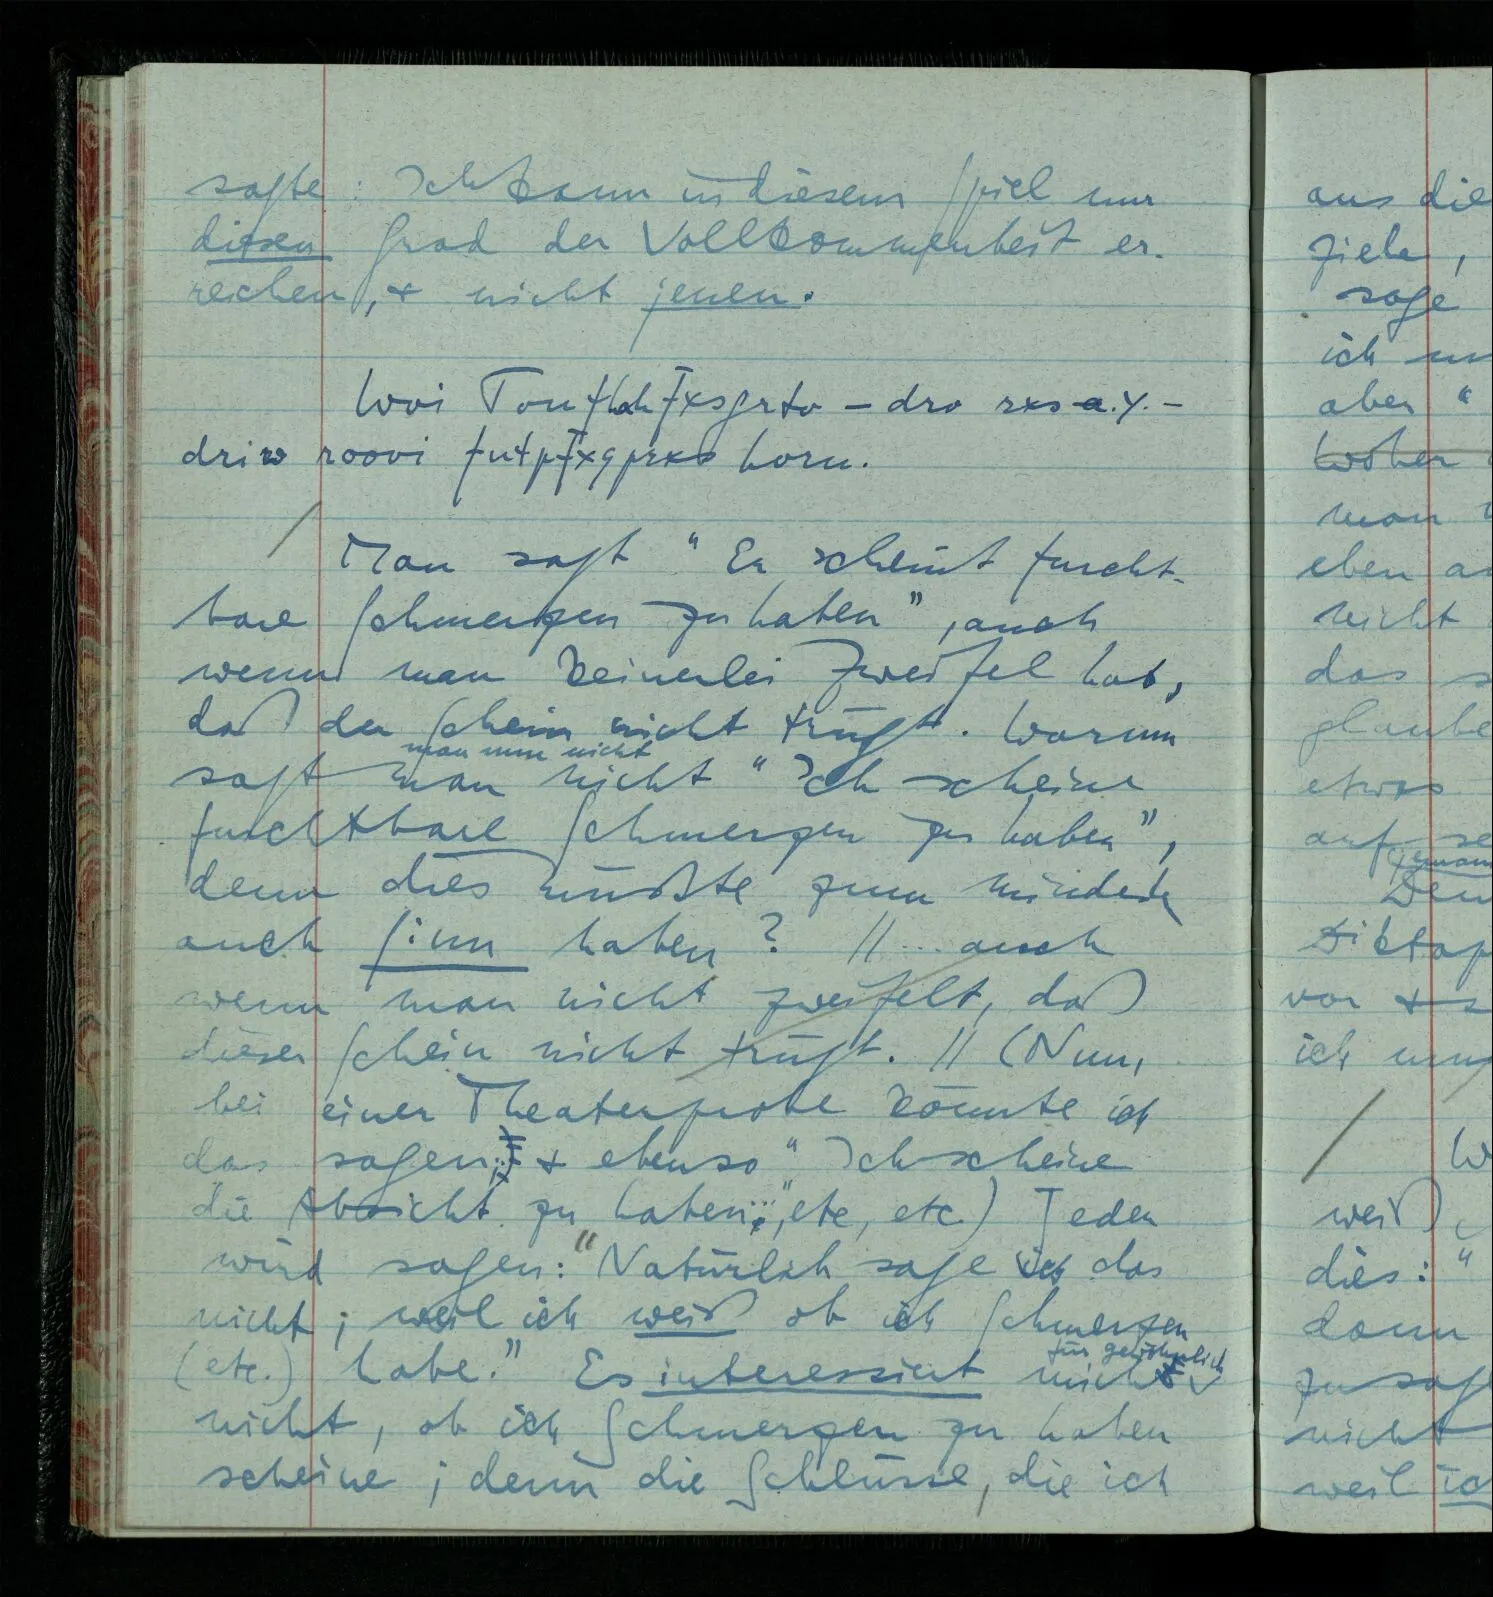 sagte: Ich kann in diesem Spiel nur
diesen Grad der Vollkommenheit er-
reichen, & nicht jenen.
Man sagt “Er scheint furcht-
bare Schmerzen zu haben”, auch
wenn man keinerlei Zweifel hat,
daß der Schein nicht trügt. Warum
man nun nicht
sagt man nicht “Ich scheine
furchtbare Schmerzen zu haben”,
denn dies müßte zum mindesten
auch Sinn haben? // … auch
wenn man nicht zweifelt, daß
dieser Schein nicht trügt. // (Nun,
bei einer Theaterprobe könnte ich
das sagen; & ebenso “Ich scheine
die Absicht zu haben …”, etc, etc.) Jeder
wird sagen: “Natürlich sage ich das
nicht; weil ich weiß ob ich Schmerzen
für gewöhnlich
(etc.) habe.” Es interessiert mich
nicht, ob ich Schmerzen zu haben
scheine; denn die Schlüsse, die ich
aus die
ziehe,
sage
ich
aber “
Woher
man
eben
nicht
das
glaube
etwas
auf
Den
Diktap
vor &
ich
W
weiß,
dies: “
dann
zu sag
nicht
weil ic